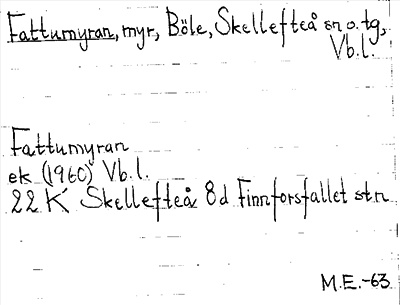 Fattumyran, myr, Böle, Skellefteå sn o. tg,
Vb.l.
Fattumyran
ek (1960) Vb.l.
22 K Skellefteå 8d Finnforsfallet st.n
M.E.-63